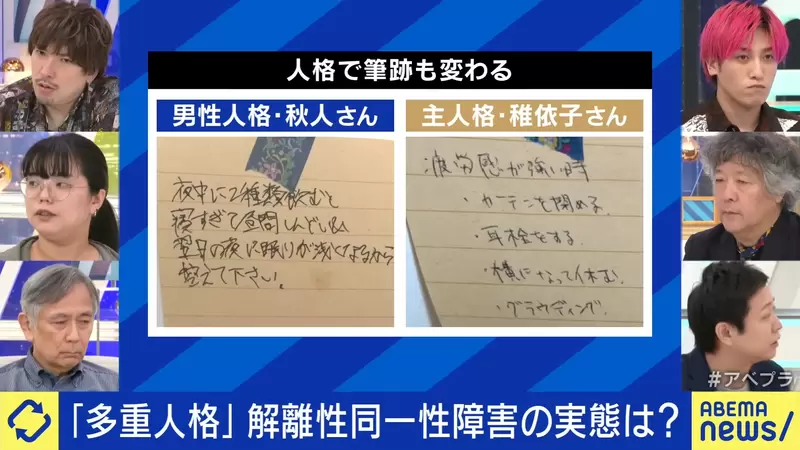 人格で筆跡も変わる
男性人格・秋人さん
夜中に2種類飲むと
寝すぎて昼間しんどいし
翌日の夜に眠りが浅くなるから
控えて下さい。
主人格・稚依子さん
疲労感が強い時
・カーテンを閉める
・耳栓をする
・横になって休む
・グラウディング
#アベプラ
「多重人格」解離性同一性障害の実態は?
ABEMA
news/